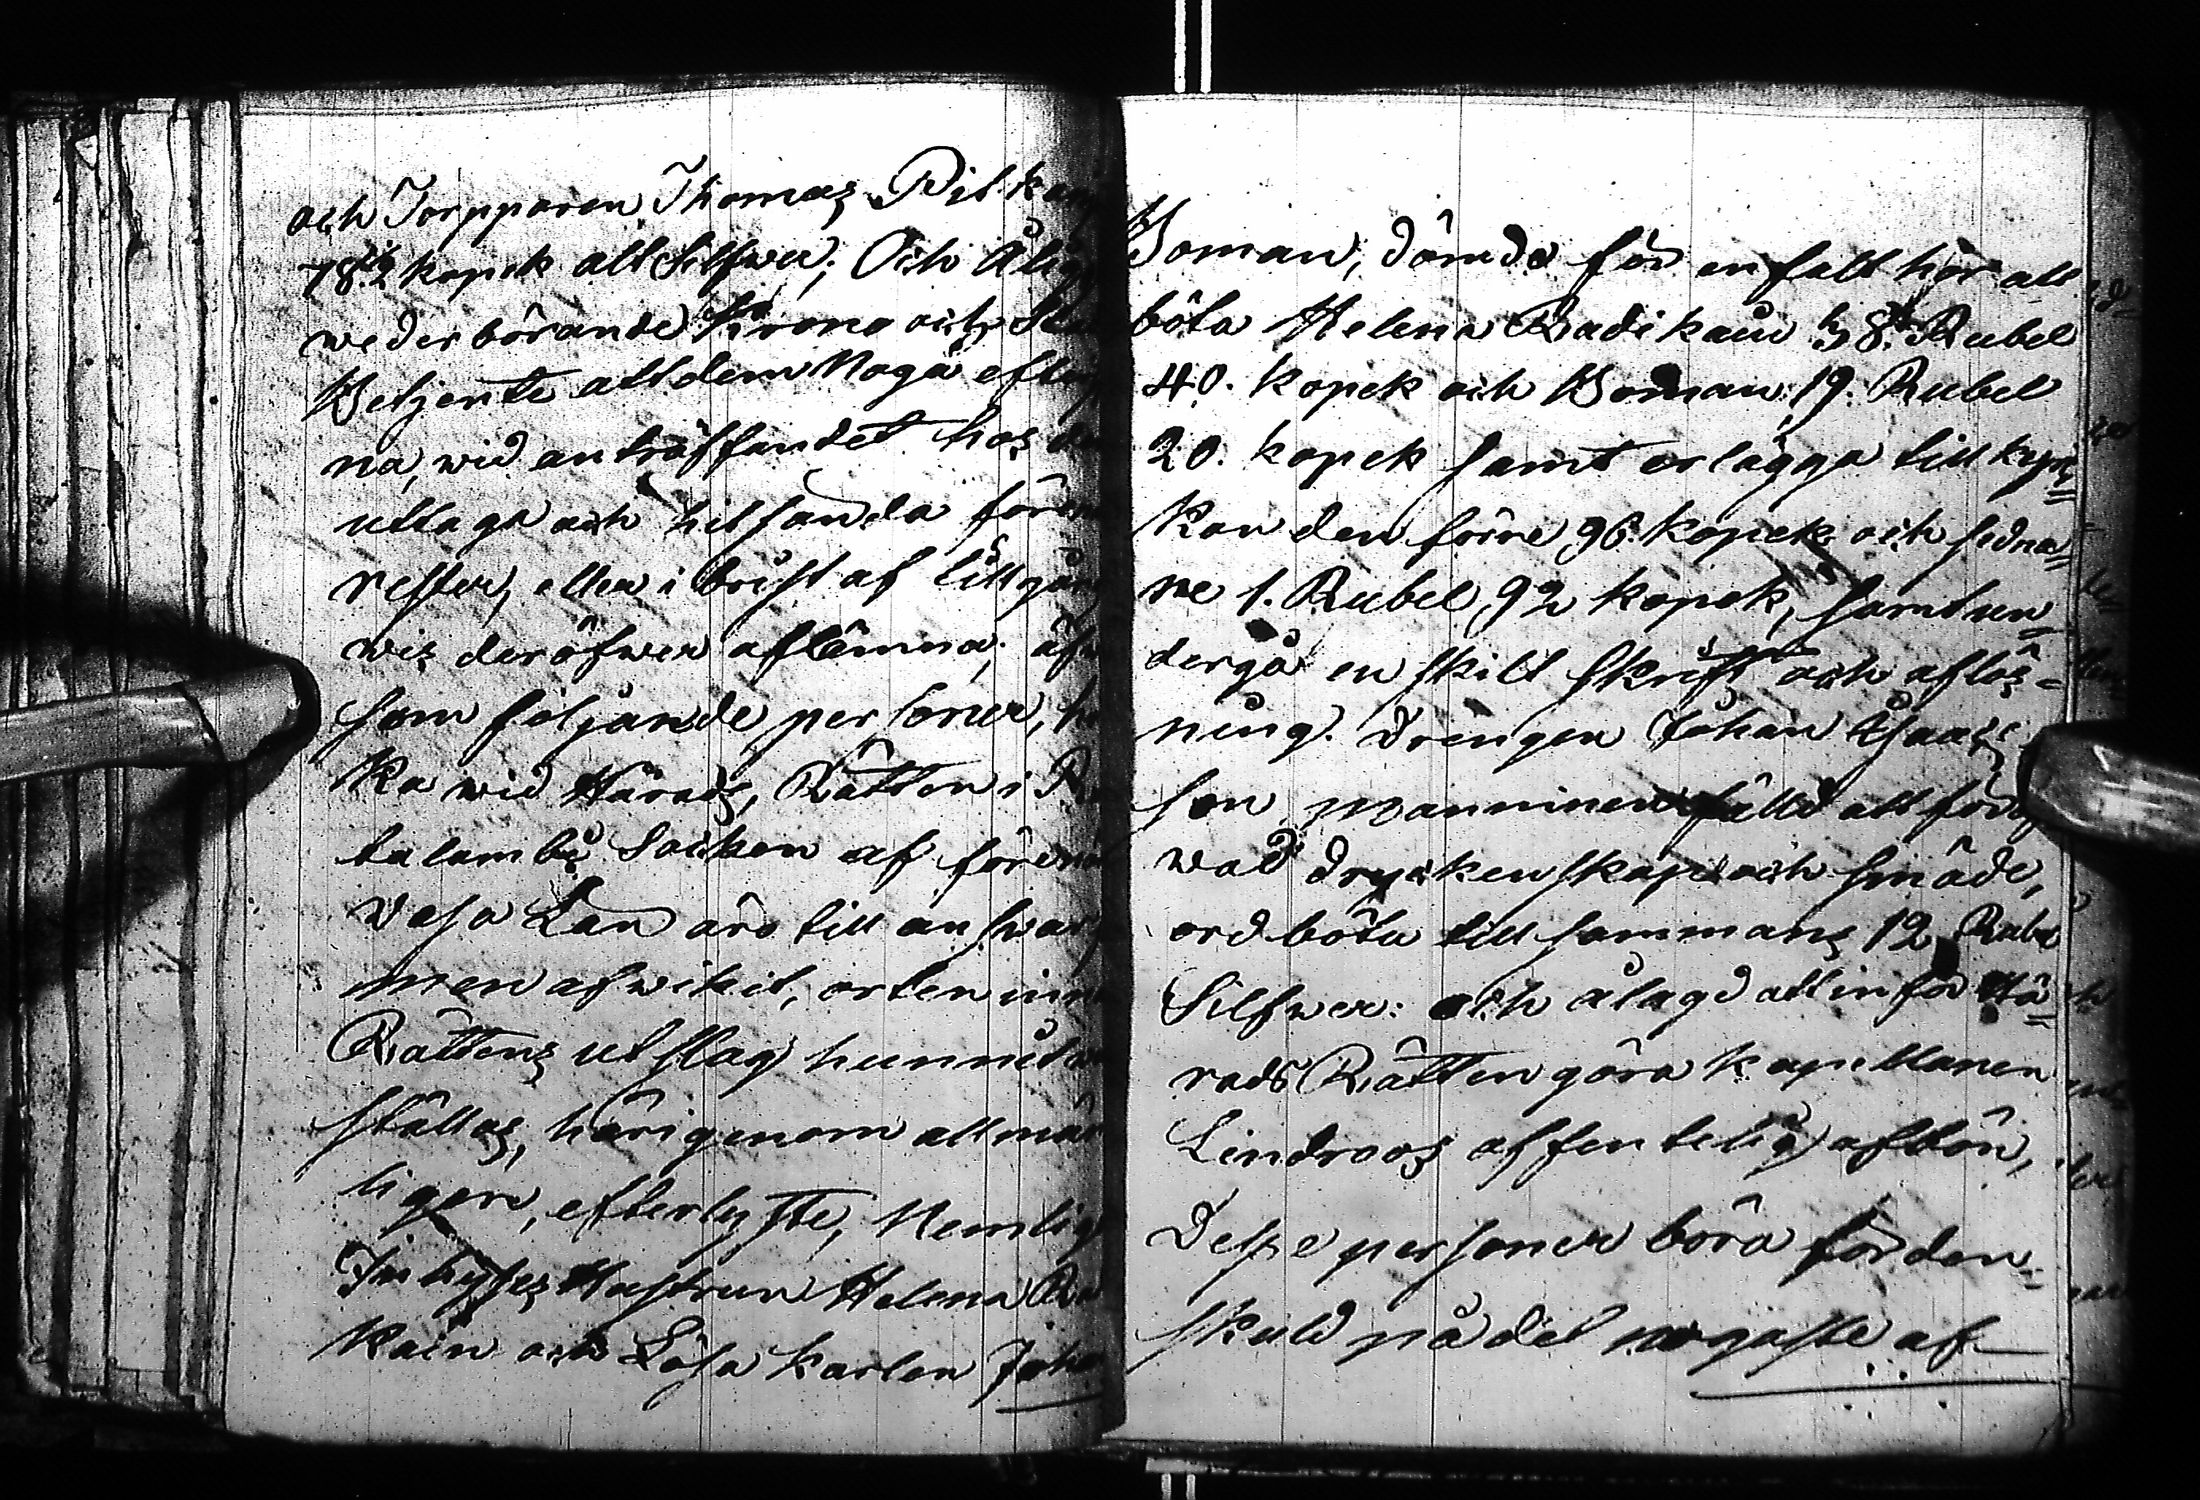 och Torpparen Thomas Pitkän
78 1/2 kopek allt Silfwer; Och Ålig
wederbörande Krono och Sta
Betjente att dem Noga efter
na, wid anträffandet hos de
uttaga och hitsända förde
rester, eller i brist af tillgån
wis deröfwer aflemna; äfw
som följande personer, h
ka wid Härads Rätten i R
talambi Socken af förena
Vasa Län äro till answar
men afwikit, orten inn
Rättens utslag hunnit
ställas, härigenom allmän
ligen, efterlyste, Nemlig
Inhyses Hustrun Helena Ra
kain och Lösa karlen Joha
Boman, dömde för enfalt hor att
böta Helena Radikain 38. Rubel
40. kopek och Boman 19. Rubel
20. kopek samt erlägga till kyr=
kan den förre 96. kopek och sedna=
re 1. Rubel 92 kopek, samt un=
dergå enskilt skrift och aflös=
ning. Drengen Johan
son Manninen fälld att för
wad dryckenskap och smäde,
ord böta tillsammans 12 Rubel
Silfwer: och ålagd att inför Hä=
rads Rätten göra kapellanen
Lindroos offentelig afbön,
Desse personer böra fördens=
skuld på det nogaste af